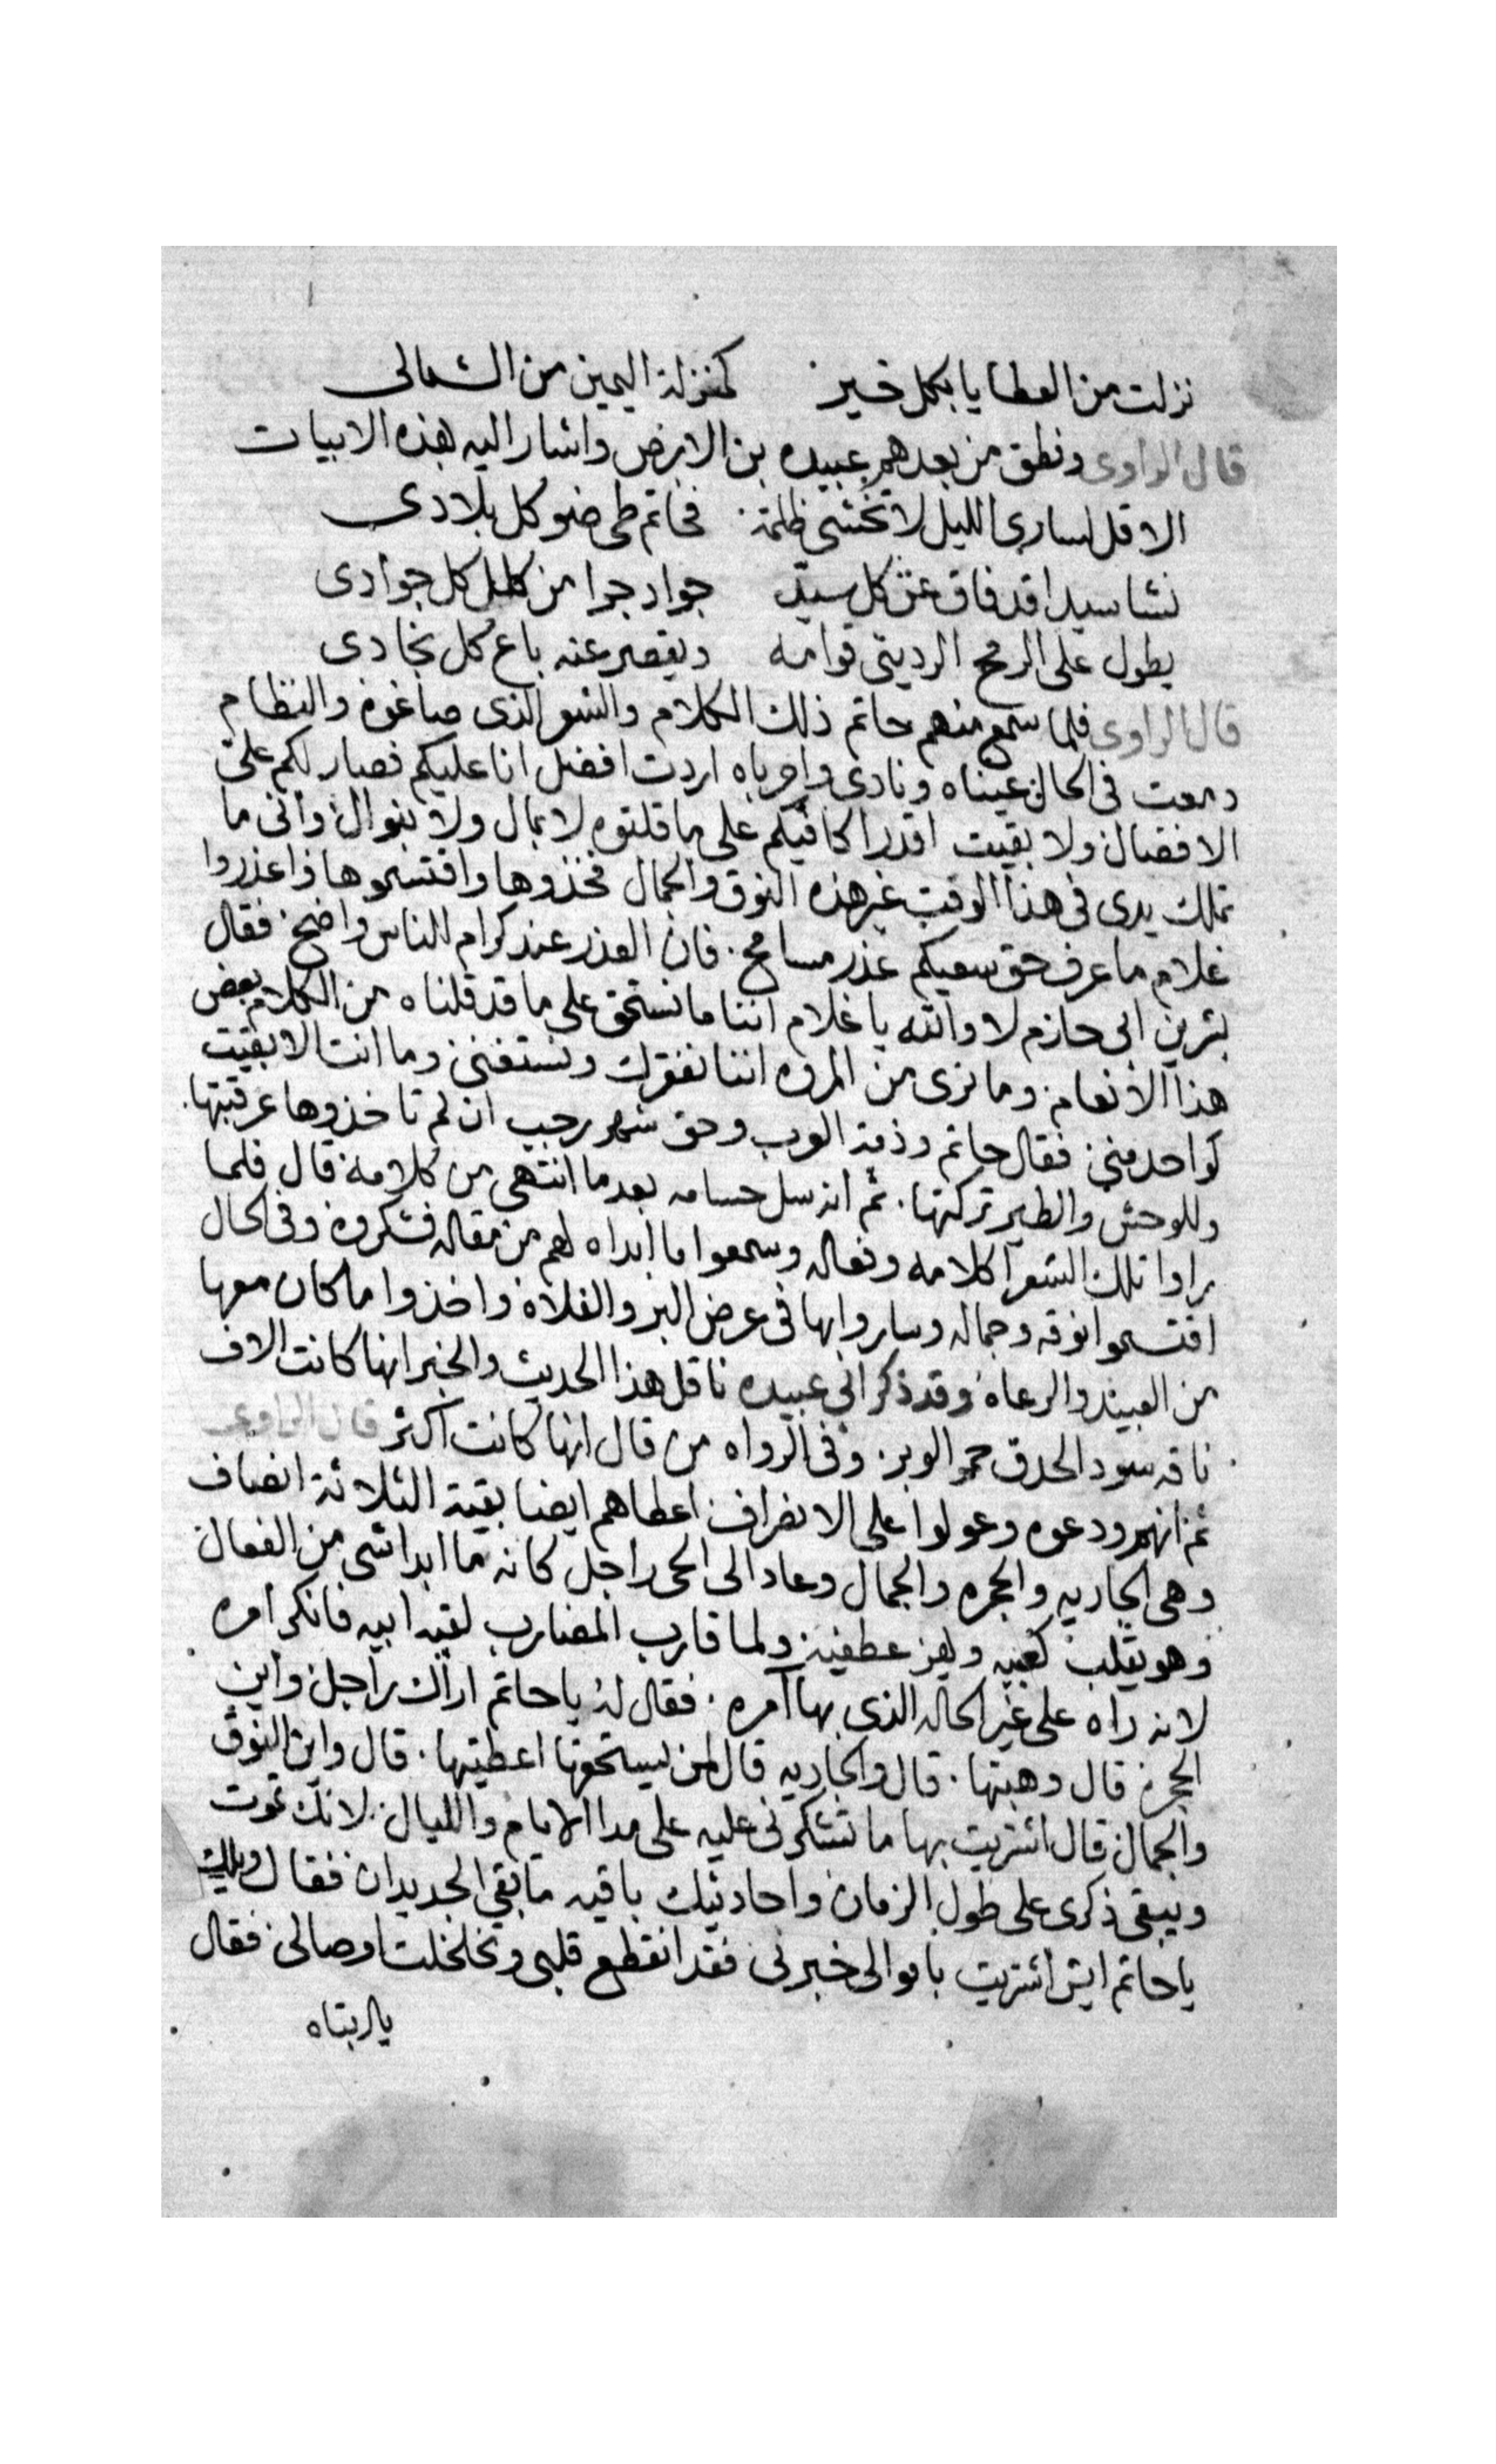 نزلت من العطايا بكل خير كمنزلة اليمين من الشمالى
قال الراوى ونطق من بعدهم عبيده بن الابرص واشار اليه بهذه الابيات
الا قل لسارى الليل لا تخشى ظلمة فحاتم طى ضو كل بلادى
نشا سيدا قد فاق عن كل سيد جواد جرا من كل كل جوادى
يطول على الرمح الردينى قوامه ويقصر عنه باع كل نجادى
قال الراوى فلما سمع منهم حاتم ذلك الكلام والشعر الذى صاغوه والنظام
دمعت فى الحال عيناه ونادى واحرباه اردت افضل انا عليكم فصار لكم على
الافضال ولا بقيت اقدر اكافيكم على ما قلتوه لا بمال ولا بنوال وانى ما
تملك يدى فى هذا الوقت غير هذه النوق والجمال فخذوها واقتسموها واعذروا
غلام ما عرف حق سعيكم عذر مسامح فان العذر عند كرام الناس واضح فقال
بشر بن ابى حازم لا والله يا غلام اننا ما نستحق على ما قد قلناه من الكلام بعض
هذا الانعام وما نرى من المروه اننا نفقرك ونستغنى وما انت الا بقيت
كواحد منى فقال حاتم وذمة العرب وحق شهر رجب ان لم تاخذوها عرقبتها
وللوحش والطير تركتها ثم انه سل حسامه بعد ما انتهى من كلامه قال فلما
راوا تلك الشعرا كلامه وفعاله وسمعوا ما ابداه لهم من مقاله فشكروه وفى الحال
اقتسموا نوقه وجماله وساروا بها فى عرض البر والفلاة واخذوا ما كان معها
من العبيد والرعاه وقد ذكر ابى عبيده ناقل هذا الحديث والخبر انها كانت الاف
ناقه سود الحدق حمر الوبر وفى الرواه من قال انها كانت اكثر قال الراوى
ثم انهم ودعوه وعولوا على الانصراف اعطاهم ايضا بقية الثلاثة انصاف
وهى الجاريه والحجره والجمال وعاد الى الحى راجل كانه ما ابدا شى من الفعال
وهو يقلب كعبيه ويهز عطفيه ولما قارب المضارب لقيه ابيه فانكر امره
لانه راه على غير الحاله الذى بها آمره فقال له يا حاتم اراك راجل واين
الحجره قال وهبتها قال والجاريه قال لمن ليستحقها اعطيتها قال واين النوق
والجمال قال اشتريت بها ما تشكرنى عليه على مدا الايام والليال لانك تموت
ويبقى ذكرى على طول الزمان واحاديثك باقيه ما بقى الجديدان فقال ويلك
يا حاتم ايش اشتريت باموالى خبرنى فقد انقطع قلبى وتخلخلت اوصالى فقال
يا ابتاه